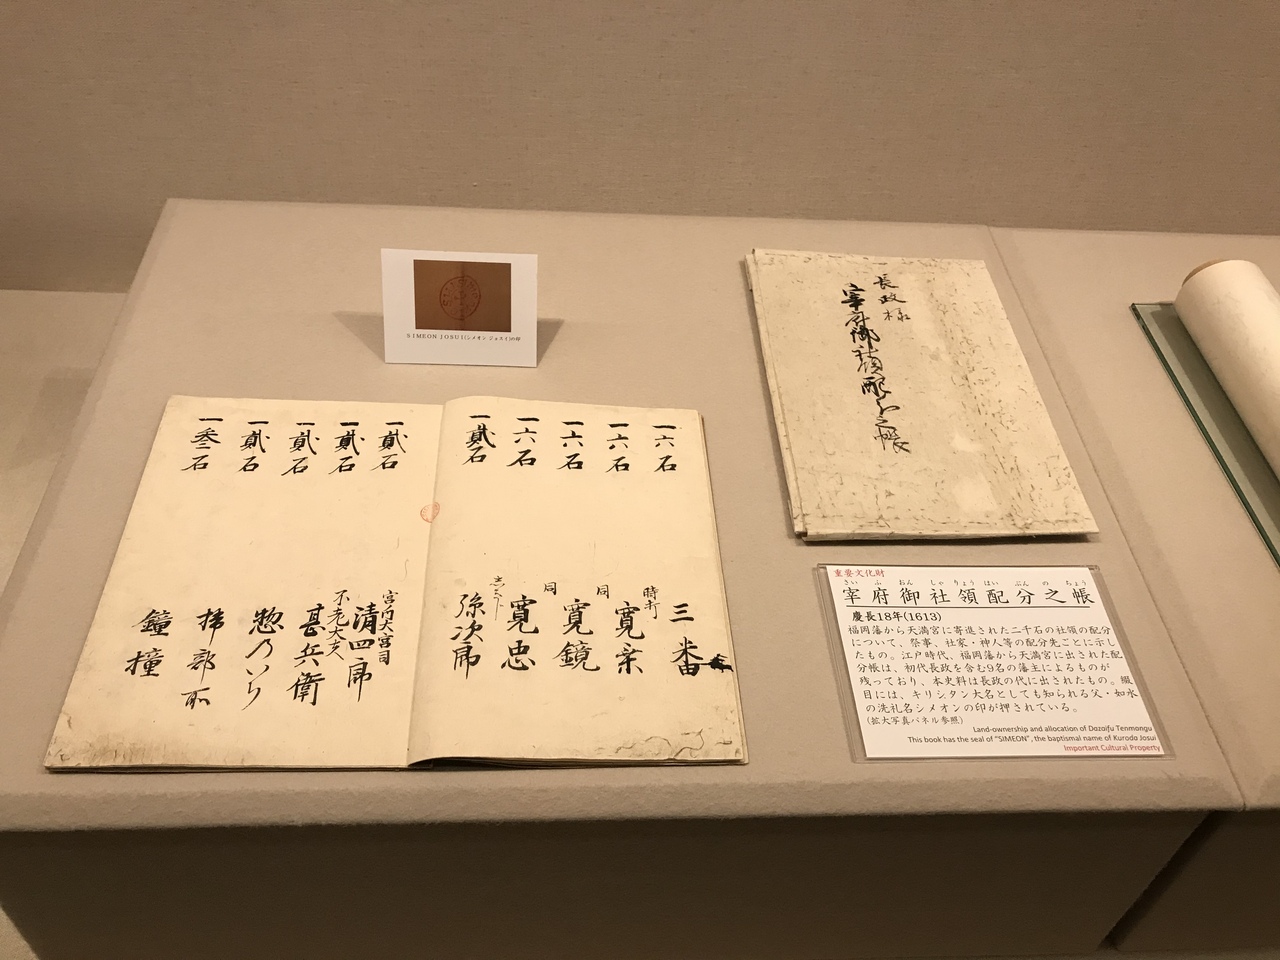 SIMEON JOSUI(シメオン ジョスイ)の印
一六石
三番
一六石
時打
寛宗
一六石
同
寛鏡
一六石
同
寛忠
一貳石
孫次郎
一貳石
宮内大宮司
清四郎
一貳石
甚兵衛
一貳石
惣のいち
一貳石
一叄石
鐘撞
長政様
宰府御社領配分之帳
重要文化財
さいふおんしゃりょうはいぶんのちょう
宰府御社領配分之帳
慶長18年(1613)
福岡藩から天満宮に寄進された二千石の社領の配分
について、祭事、社家・神人等の配分先ごとに示し
たもの。江戸時代、福岡藩から天満宮に出された配
分帳は、初代長政を含む9名の藩主によるものが
残っており、本史料は長政の代に出されたもの。綴
目には、キリシタン大名としても知られる父・如水
の洗礼名シメオンの印が押されている。
(拡大写真パネル参照)
Land-ownership and allocation of Dazaifu Tenmongu
This book has the seal of "SIMEON", the baptismal name of Kuroda Josui
Important Cultural Property